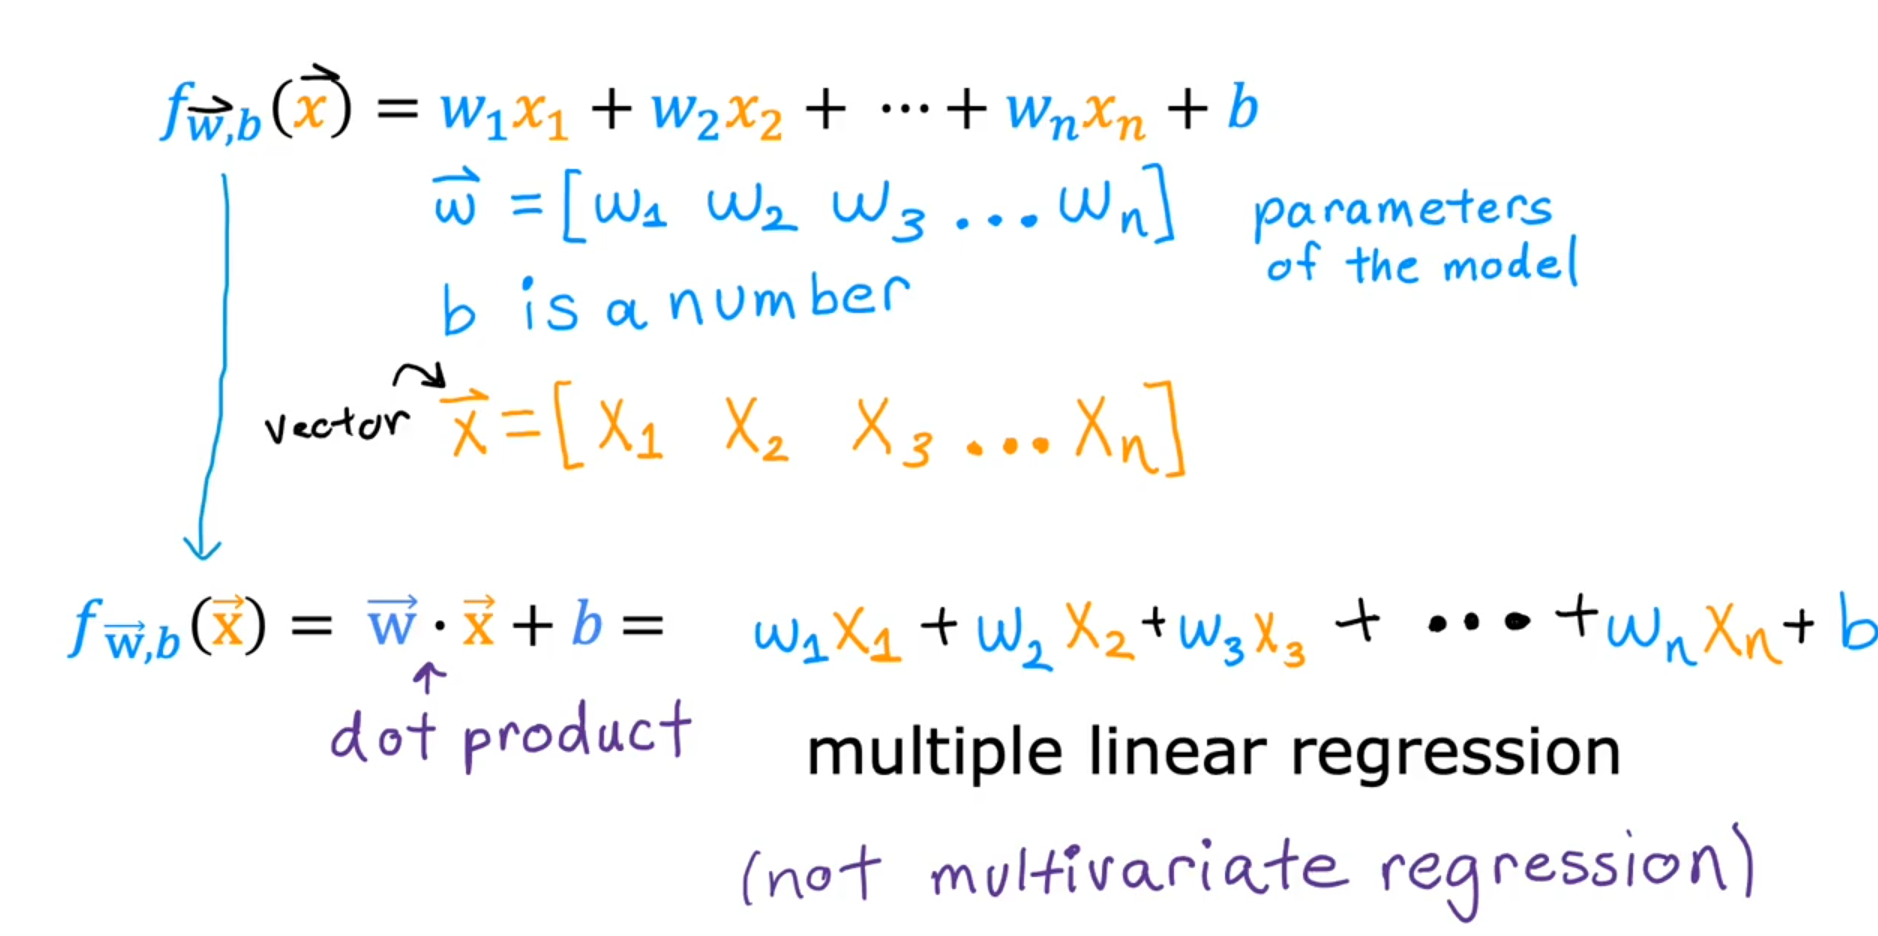 f_{\vec{w},b}(\vec{x}) = w₁x₁ + w₂x₂ + ⋯ + wₙxₙ + b
\vec{w} = [w₁ w₂ w₃ ... wₙ]
parameters
of the model
b is a number
vector \vec{x} = [x₁ x₂ x₃ ... xₙ]
f_{\vec{w},b}(\vec{x}) = \vec{w} · \vec{x} + b = w₁x₁ + w₂x₂ + w₃x₃ + ... + wₙxₙ + b
dot product
multiple linear regression
(not multivariate regression)